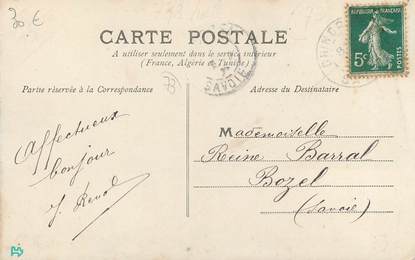 30 €
CARTE POSTALE
A utiliser seulement dans le service intérieur
(France, Algérie et Tunisie)
SAVOIE
REPUBLIQUE FRANÇAISE
5c
POSTES
Partie réservée à la Correspondance
Adresse du Destinataire
Affectueux
bonjour
Mademoiselle
Reine Barral
Bozel
(Savoie)